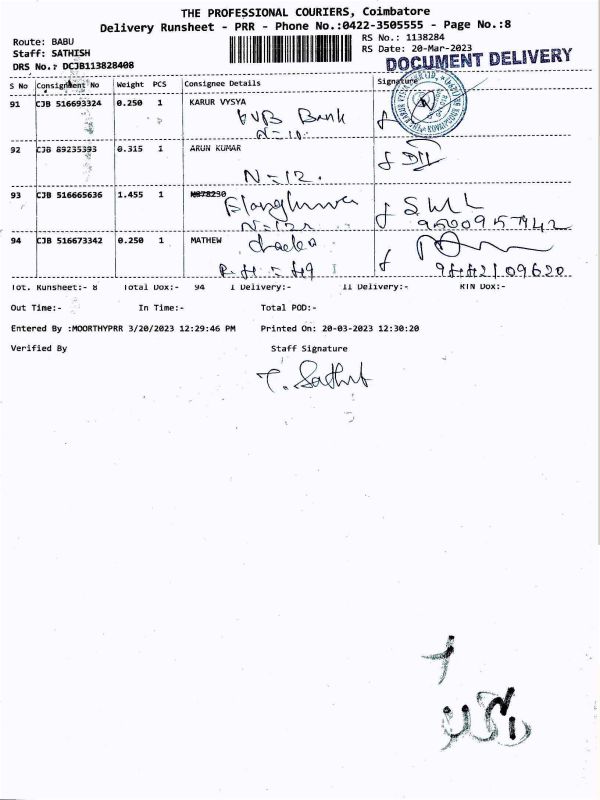 THE PROFESSIONAL COURIERS, Coimbatore
Delivery Runsheet - PRR - Phone No.:0422-3505555 - Page No.:8
Route: BABU
Staff: SATHISH
DRS No.: DCJB113828408
RS No.: 1138284
RS Date: 20-Mar-2023
DOCUMENT DELIVERY
S No Consignment No Weight PCS Consignee Details Signature
91 CJB 516693324 0.250 1 KARUR VYSYA
KVB Bank
92 CJB 89235393 0.315 1 ARUN KUMAR
N=12.
93 CJB 516665636 1.455 1 N878230
9500957942
94 CJB 516673342 0.250 1 MATHEW
Tot. Runsheet:- 8 Total Dox:- 94 I Delivery:- II Delivery:- RTN Dox:-
Out Time:- In Time:- Total POD:-
Entered By :MOORTHYPRR 3/20/2023 12:29:46 PM Printed On: 20-03-2023 12:30:20
Verified By Staff Signature
T. Sathish